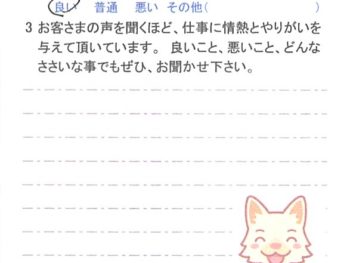 良い 普通 悪い その他( )
3 お客さまの声を聞くほど、仕事に情熱とやりがいを
与えて頂いています。 良いこと、悪いこと、どんな
ささいな事でもぜひ、お聞かせ下さい。